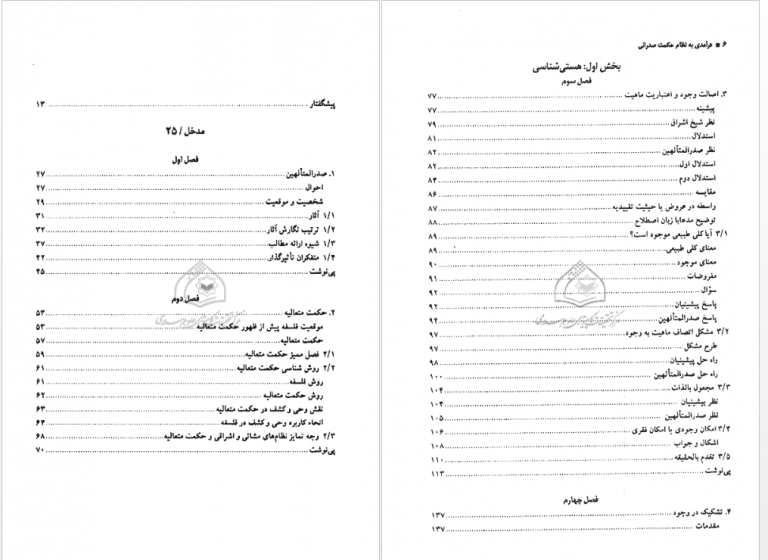 پیشگفتار ... ۱۳
مدخل / ۲۵
فصل اول
۱. صدرالمتألهین ... ۲۷
احوال ... ۲۷
شخصیت و موقعیت ... ۲۹
۱/۱ آثار ... ۳۱
۱/۲ ترتیب نگارش آثار ... ۳۲
۱/۳ شیوه ارائه مطالب ... ۳۷
۱/۴ متفکران تأثیرگذار ... ۴۲
پی‌نوشت ... ۴۵
فصل دوم
۲. حکمت متعالیه ... ۵۳
موقعیت فلسفه پیش از ظهور حکمت متعالیه ... ۵۳
حکمت متعالیه ... ۵۷
۲/۱ فصل ممیز حکمت متعالیه ... ۵۹
۲/۲ روش شناسی حکمت متعالیه ... ۶۱
روش فلسفه ... ۶۱
روش حکمت متعالیه ... ۶۲
نقش وحی و کشف در حکمت متعالیه ... ۶۳
انحاء کاربرد وحی و کشف در فلسفه ... ۶۴
۲/۳ وجه تمایز نظام‌های مشائی و اشراقی و حکمت متعالیه ... ۶۸
پی‌نوشت ... ۷۰
۶ ■ درآمدی به نظام حکمت صدرائی
بخش اول: هستی‌شناسی
فصل سوم
۳. اصالت وجود و اعتباریت ماهیت ... ۷۷
پیشینه ... ۷۷
نظر شیخ اشراق ... ۷۹
استدلال ... ۸۱
نظر صدرالمتألهین ... ۸۲
استدلال اول ... ۸۲
استدلال دوم ... ۸۴
مقایسه ... ۸۶
واسطه در عروض یا حیثیت تقییدیه ... ۸۷
توضیح مدعا با زبان اصطلاح ... ۸۸
۳/۱ آیا کلی طبیعی موجود است؟ ... ۸۹
معنای کلی طبیعی ... ۸۹
معنای موجود ... ۹۰
مفروضات ... ۹۱
سؤال ... ۹۲
پاسخ پیشینیان ... ۹۲
پاسخ صدرالمتألهین ... ۹۴
۳/۲ مشکل اتصاف ماهیت به وجود ... ۹۷
طرح مشکل ... ۹۷
راه حل پیشینیان ... ۹۸
راه حل صدرالمتألهین ... ۱۰۰
۳/۳ مجعول بالذات ... ۱۰۴
نظر پیشینیان ... ۱۰۴
نظر صدرالمتألهین ... ۱۰۵
۳/۴ امکان وجودی یا امکان فقری ... ۱۰۶
اشکال و جواب ... ۱۰۸
۳/۵ تقدم بالحقیقه ... ۱۱۰
پی‌نوشت ... ۱۱۳
فصل چهارم
۴. تشکیک در وجود ... ۱۳۷
مقدمات ... ۱۳۷